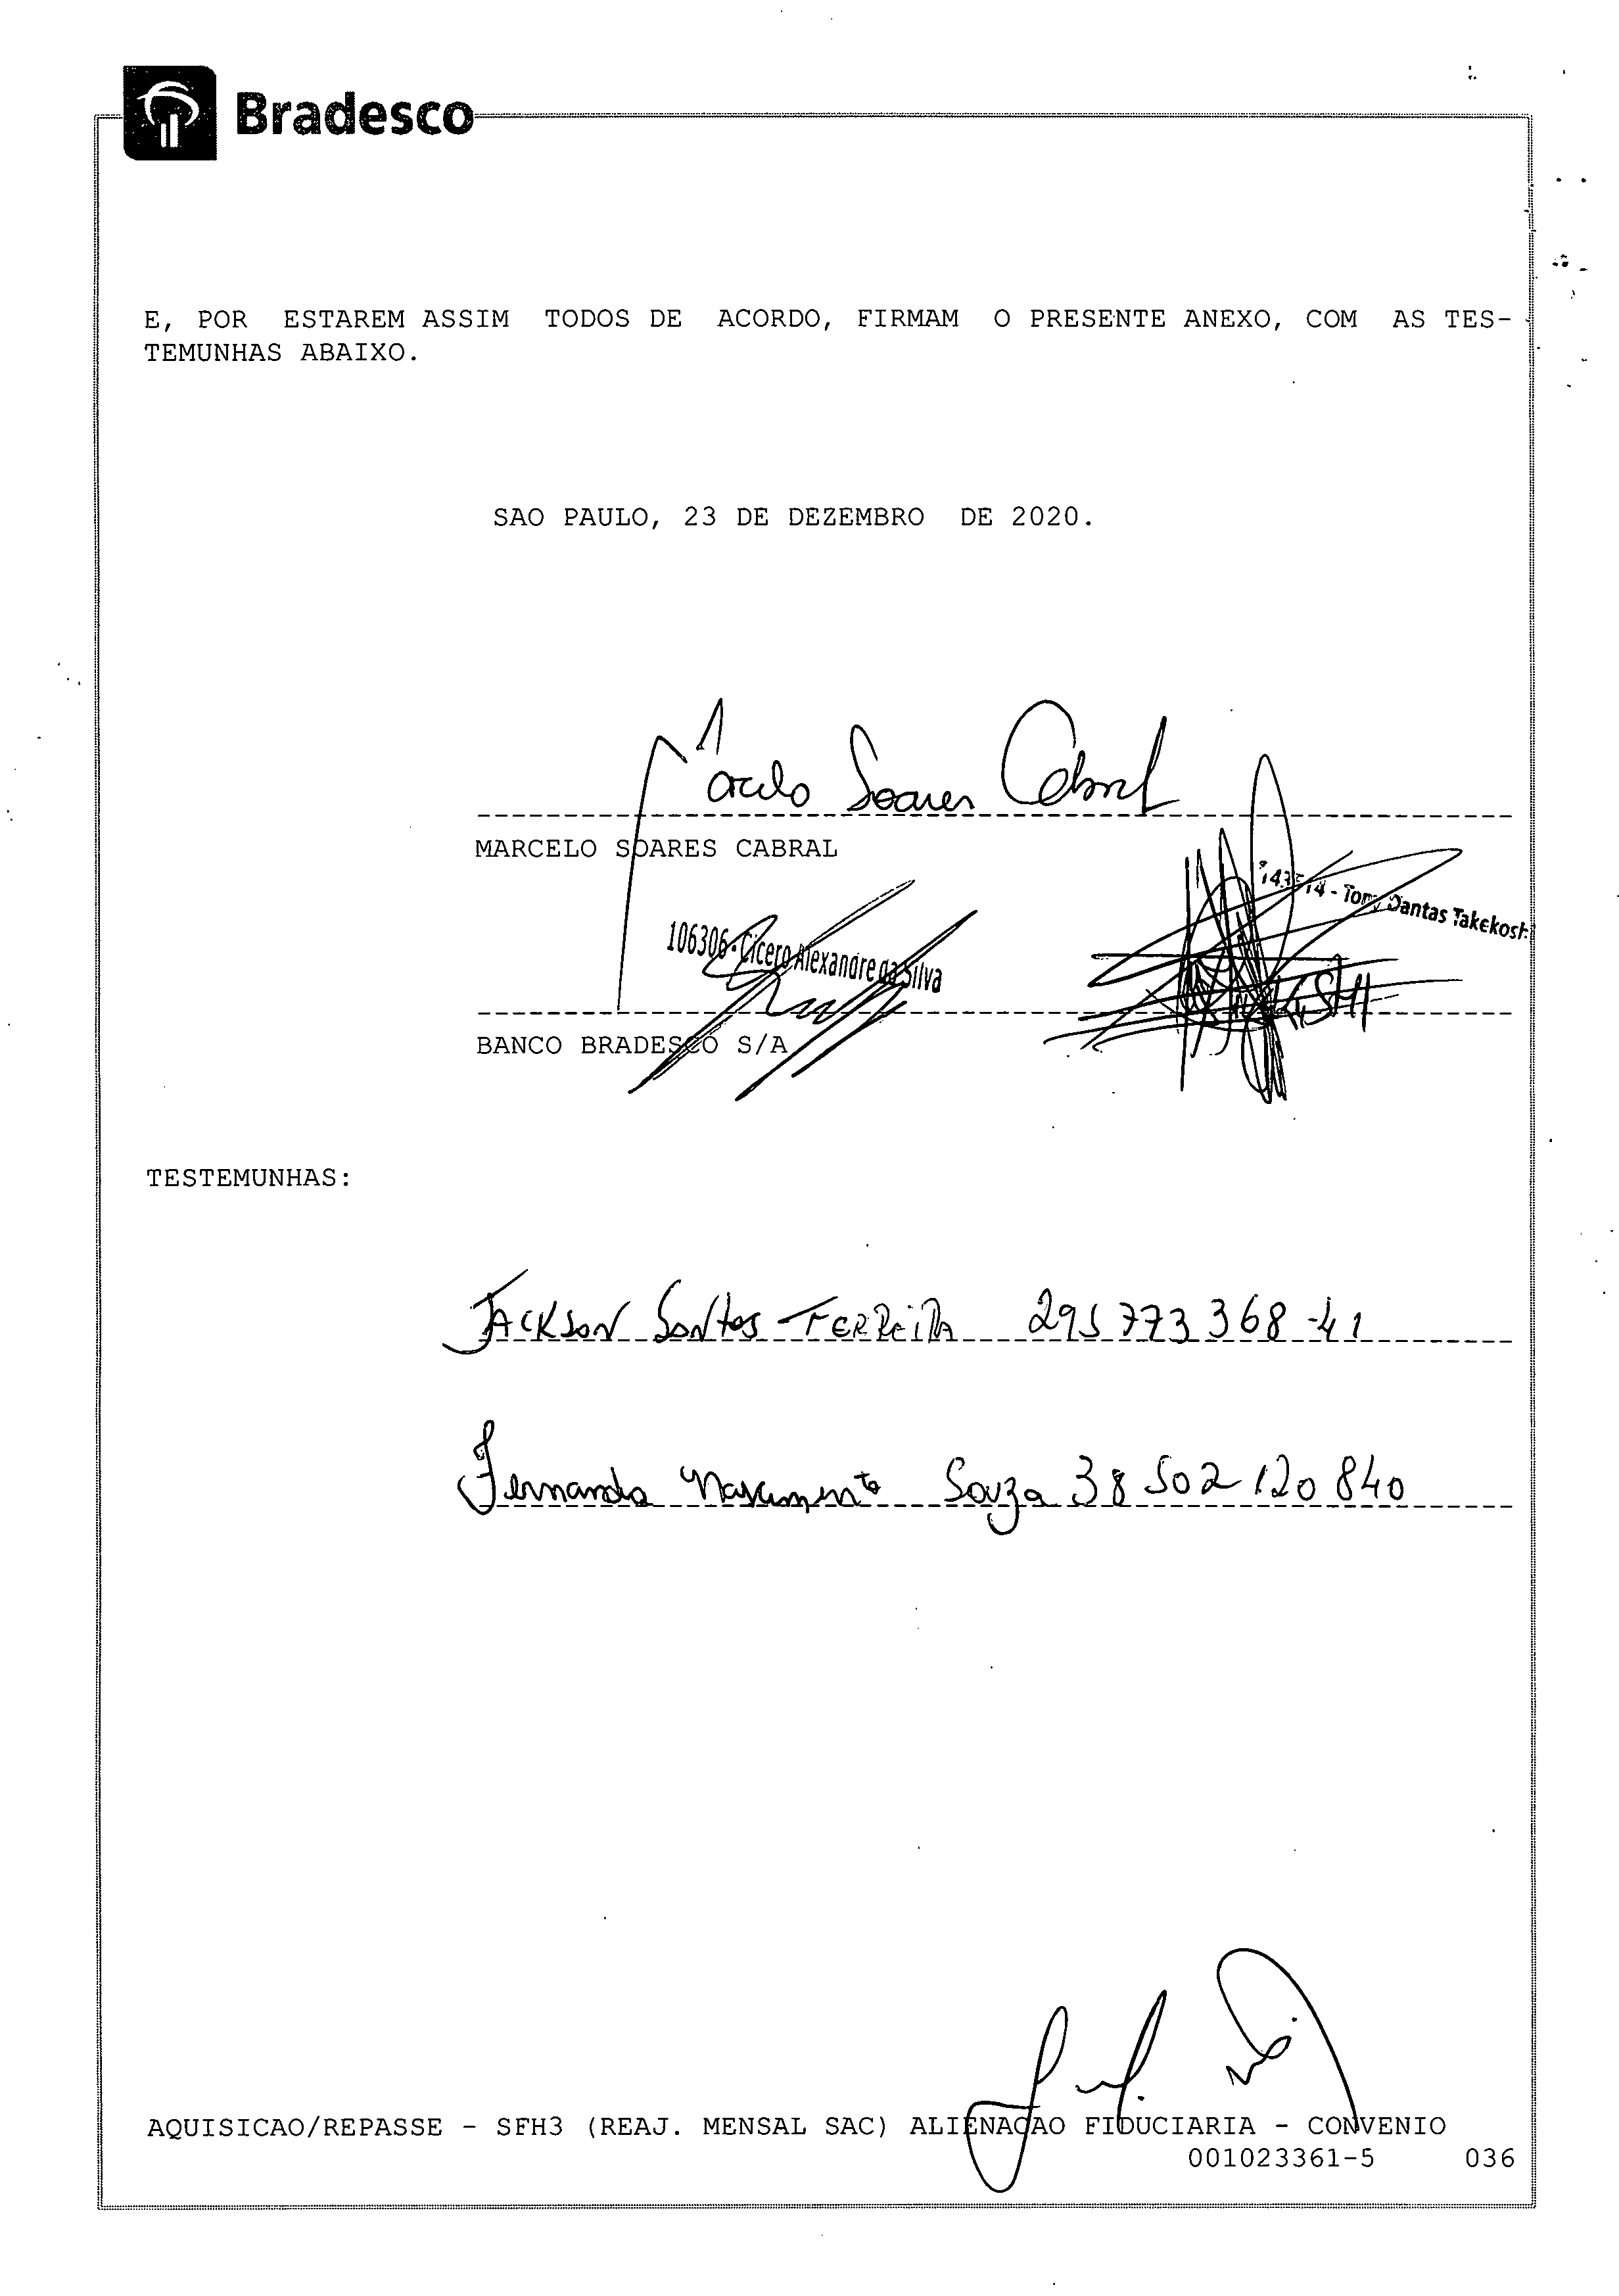 Bradesco
E, POR ESTAREM ASSIM TODOS DE ACORDO, FIRMAM O PRESENTE ANEXO, COM AS TES-
TEMUNHAS ABAIXO.
SAO PAULO, 23 DE DEZEMBRO DE 2020.
Marcelo Soares Cabral
MARCELO SOARES CABRAL
- Tony Dantas Takekoshi
106306 - Cicero Alexandre da Silva
BANCO BRADESCO S/A
TESTEMUNHAS:
JACKSON SANTOS FERREIRA 295 773 368-41
Fernanda Nascimento Souza 38502120840
AQUISICAO/REPASSE - SFH3 (REAJ. MENSAL SAC) ALIENACAO FIDUCIARIA - CONVENIO
001023361-5 036